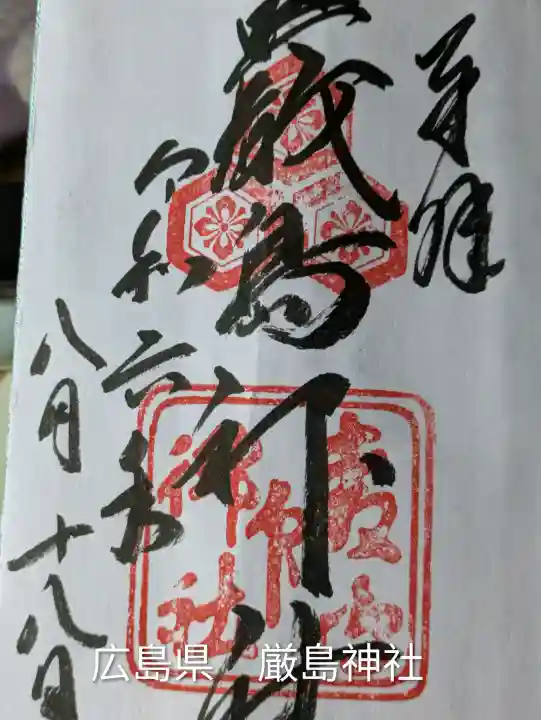 奉拝
厳島神社
令和六年
八月十八日
広島県　厳島神社